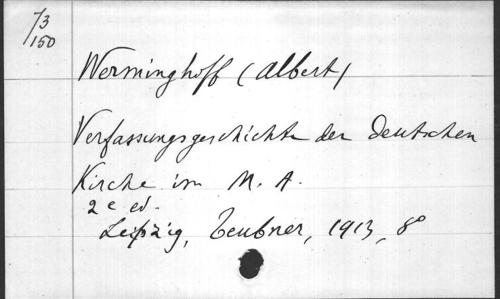 73
/150
Werminghoff (Albert)
Verfassungsgeschichte der deutschen
Kirche im M. A.
2e ed.
Leipzig, Teubner, 1913, 8°